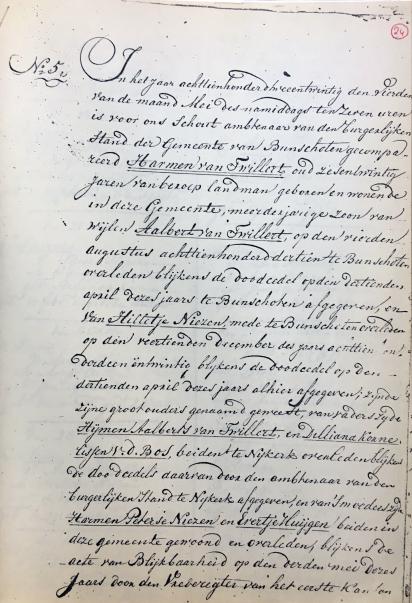 24
No. 5.
In het jaar achttienhonderd drieentwintig den vierden
van de maand Mei des namiddags ten zeven uren
is voor ons Schout ambtenaar van den burgerlijken
Stand der Gemeente van Bunschoten gecompa-
reerd Harmen van Twillert, oud zesentwintig
jaren van beroep landman geboren en wonende
in deze Gemeente, meerderjarige zoon van
wijlen Halbert van Twillert, op den vierden
augustus achttienhonderd dertien te Bunschoten
overleden blijkens de doodcedel op den dertienden
april dezes jaars te Bunschoten afgegeven, en
van Hilletje Niezen, mede te Bunschoten overleden
op den veertienden december des jaars achttien on-
derd een entwintig blijkens de doodcedel op den
dertienden april dezes jaars alhier afgegeven; zijnde
zijne grootouders genaamd geweest, van vaders zijde
Hijmen halberts van Twillert, en
lissen V. D. Bos, beiden te Nijkerk overleden blijkens
de doodcedels daarvan door den ambtenaar van den
burgerlijken Stand te Nijkerk afgegeven, en van 's moeders zijde
Harmen Peterse Niezen en Evertje Huijgen beiden in
deze gemeente gewoond en overleden, blijkens de
acte van Blijkbaarheid op den derden mei dezes
Jaars door den Vrederegter van het eerste Kanton